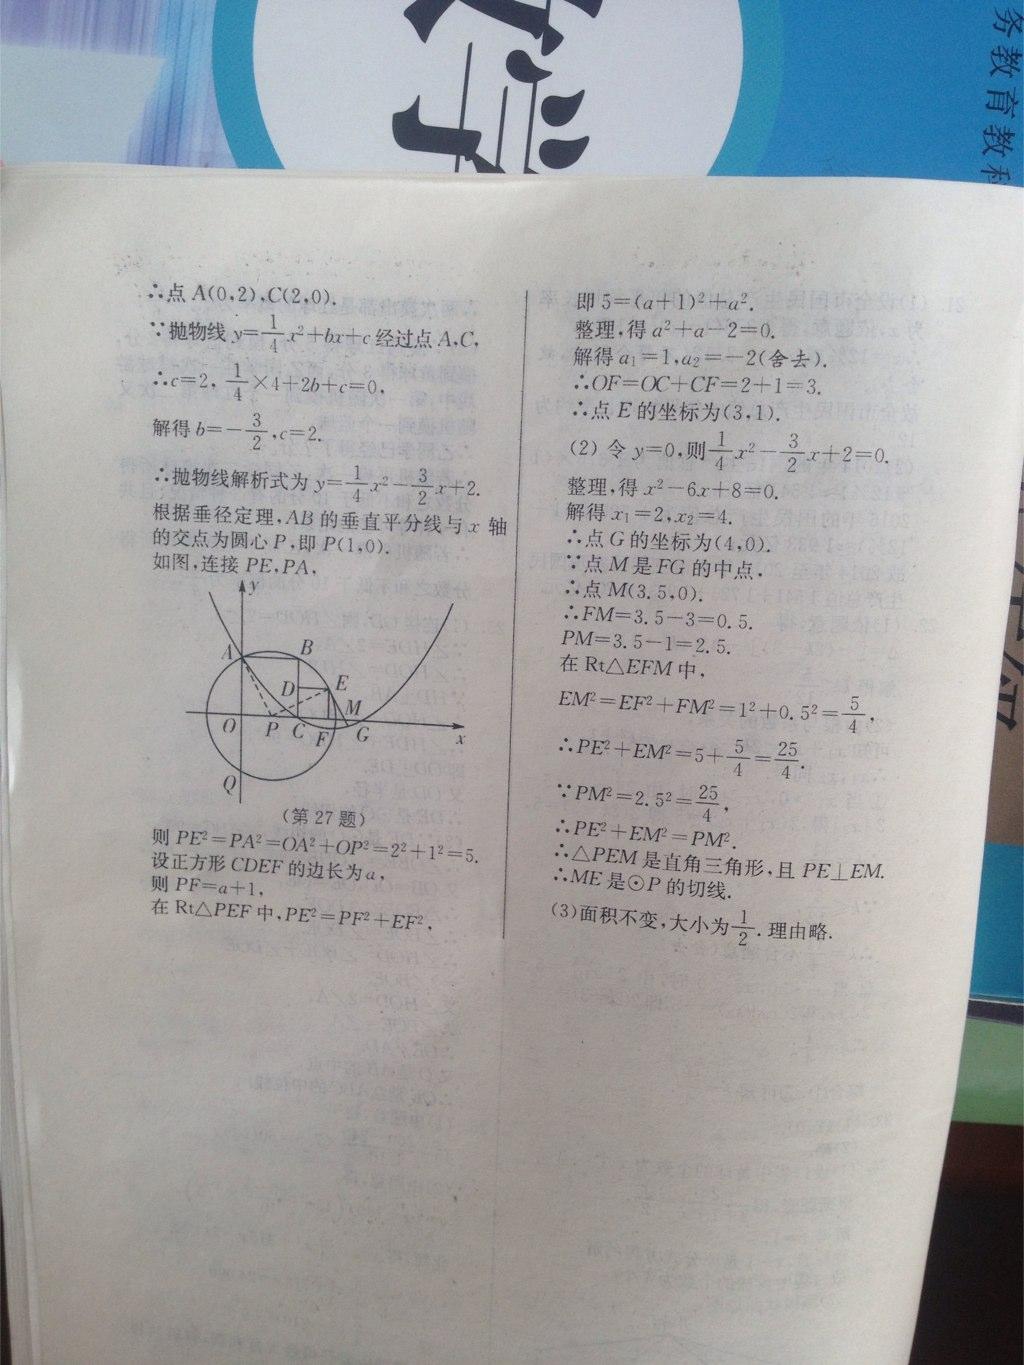 务教育教科
学
∴点 A(0,2),C(2,0).
∵抛物线 y=1/4x²+bx+c 经过点 A,C,
∴c=2, 1/4×4+2b+c=0,
解得 b=-3/2,c=2.
∴抛物线解析式为 y=1/4x²-3/2x+2.
根据垂径定理,AB 的垂直平分线与 x 轴
的交点为圆心 P,即 P(1,0).
如图,连接 PE,PA,
y
A
B
D
E
M
O
P
C
F
G
x
Q
(第 27 题)
则 PE²=PA²=OA²+OP²=2²+1²=5.
设正方形 CDEF 的边长为 a,
则 PF=a+1,
在 Rt△PEF 中,PE²=PF²+EF²,
即 5=(a+1)²+a².
整理,得 a²+a-2=0.
解得 a₁=1,a₂=-2(舍去).
∴OF=OC+CF=2+1=3.
∴点 E 的坐标为(3,1).
(2) 令 y=0,则 1/4x²-3/2x+2=0.
整理,得 x²-6x+8=0.
解得 x₁=2,x₂=4.
∴点 G 的坐标为(4,0).
∵点 M 是 FG 的中点,
∴点 M(3.5,0).
∴FM=3.5-3=0.5.
PM=3.5-1=2.5.
在 Rt△EFM 中,
EM²=EF²+FM²=1²+0.5²=5/4,
∴PE²+EM²=5+5/4=25/4.
∵PM²=2.5²=25/4,
∴PE²+EM²=PM².
∴△PEM 是直角三角形,且 PE⊥EM.
∴ME 是⊙P 的切线.
(3)面积不变,大小为1/2. 理由略.